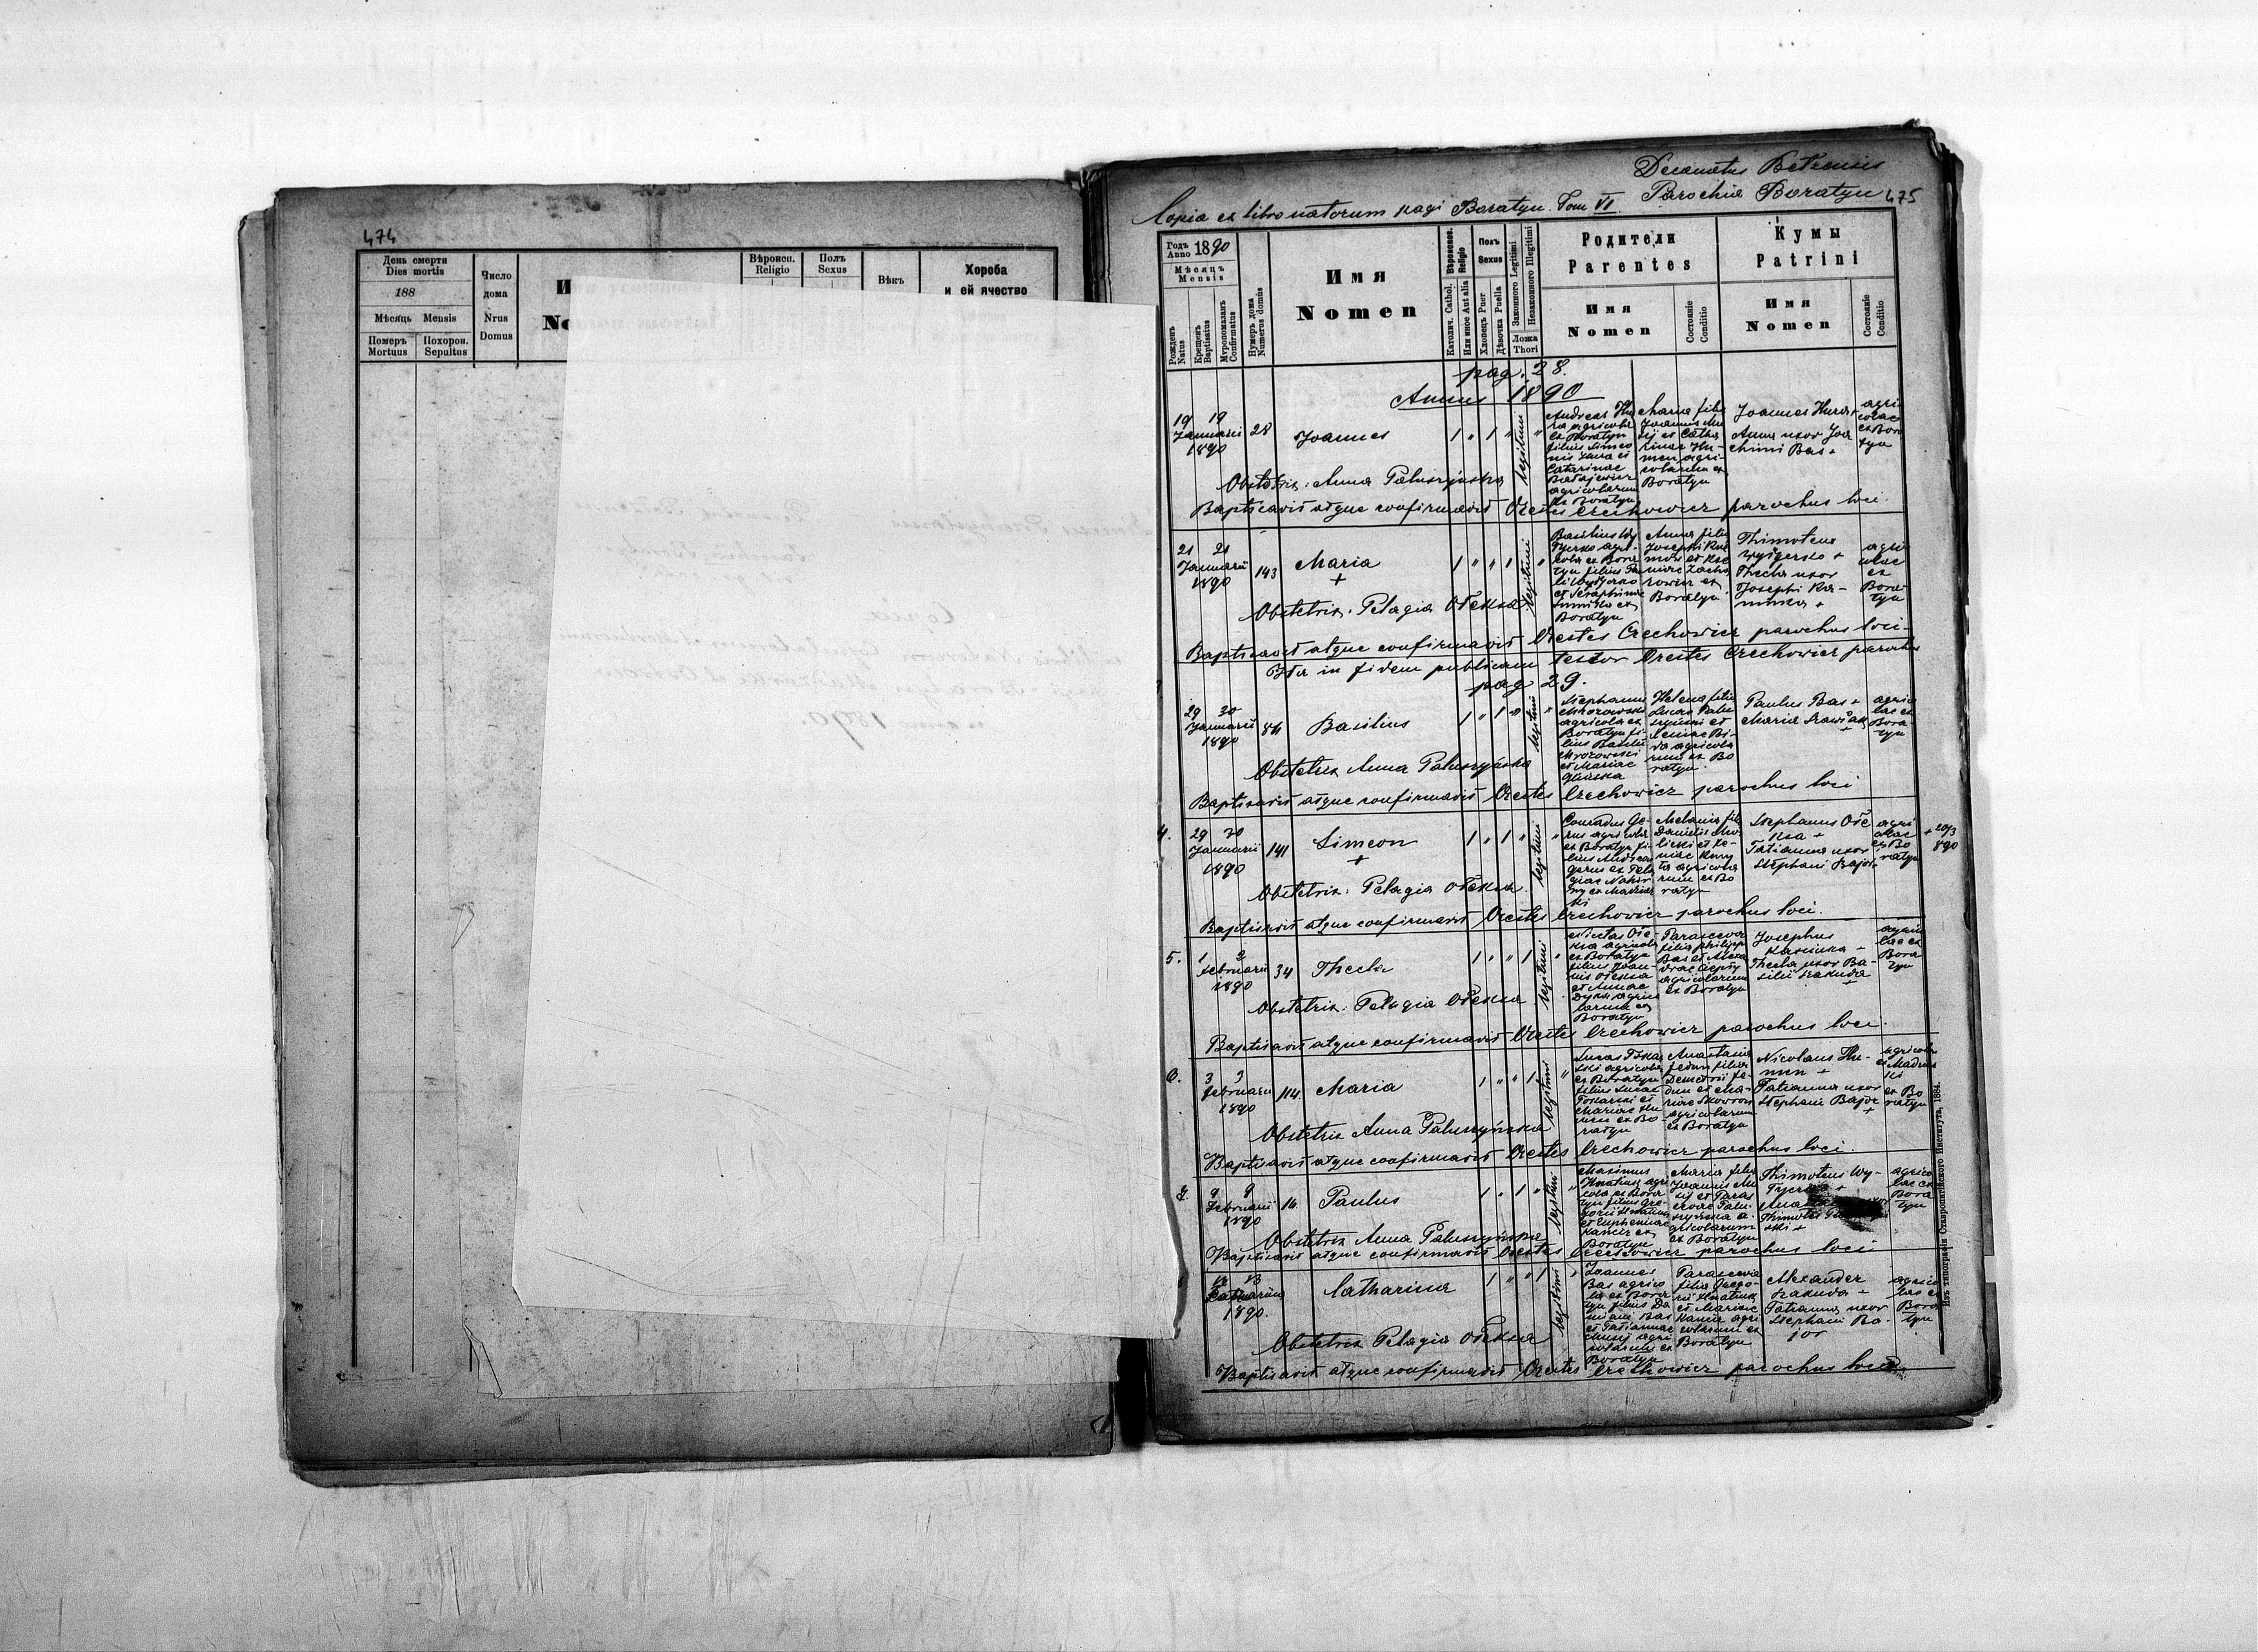 474
День смерти
Dies mortis
188
Мѣсяць Mensis
Померъ
Mortuus
Похорон.
Sepultus
Число
дома
Nrus
Domus
Вѣроисп.
Religio
Полъ
Sexus
Вѣкъ
Хороба
и ей ячество
Decanatus Betzensis
Parochia Boratyn 475
Copia ex libro natorum pagi Boratyn. Tom VI
Годъ
Anno 1890
Мѣсяцъ
Mensis
Рожденъ
Natus
Крещенъ
Baptisatus
Мѵропомазан
Confirmatus
Нумеръ дома
Numerus domus
Имя
Nomen
Вѣроиспов.
Religio
Католич. Cathol.
Или иное Aut alia
Полъ
Sexus
Хлопецъ Puer
Дѣвочка Puella
Законного Legitimi
Незаконного Illegitimi
Ложа
Thori
Родители
Parentes
Имя
Nomen
Состояніе
Conditio
Кумы
Patrini
Имя
Nomen
Состояніе
Conditio
pag. 28.
Annus 1890
19 19
Januarii
1890
28
Joannes
1 " 1 "
legitimi
Andreas Hu
ra agricola
ex Boratyn
filius Simeo
nis Hura et
Catarinae
agricolarum
ex Boratyn
Maria filia
Joannis Mu
sij et Catha
rinae Hu-
men agri-
colarum ex
Boratyn
Joannes Hura +
Anna uxor Joa
chimi Bas +
agri
colae
ex Bora
tyn
Obstetrix: Anna Paluszyńska
Baptisavit atque confirmavit Orestes Czechowicz parochus loci.
21 21
Januarii
1890
143
Maria
+
1 " " 1
legitimi
Basilius Wy
agri-
cola ex Bora
tyn filius Pa
et Seraphinae
ex
Boratyn
Anna filia
Josephi
et
Zacha
rowicz ex
Boratyn
Thimoteus
+
Thecla uxor
Josephi Ka-
minka +
agri
colae
ex
Bora
tyn
Obstetrix: Pelagia Ołeksa
Baptisavit atque confirmavit Orestes Czechowicz parochus loci.
Ita in fidem publicam testor Orestes Czechowicz parochus
pag 29.
29 30
Januarii
1890
84
Basilius
1 " 1 "
legitimi
Stephanus
Mrozowski
agricola ex
Boratyn fi-
lius Basilii
Mrozowski
et Mariae
Helena filia
Lucae Palu
szyński et
Xeniae Bi-
da agricola
rum ex Bo
ratyn
Paulus Bas +
Maria
+
agrico
lae ex
Bora-
tyn
Obstetrix Anna Paluszyńska
Baptisavit atque confirmavit Orestes Czechowicz parochus loci
4.
29 30
Januarii
1890
141
Simeon
+
1 " 1 "
legitimi
Conradus Ge-
rus agricola
ex Boratyn fi-
lius Andreae
Gerus et Pela
giae
ex Madziar
ki
Melania filia
Danielis
et Xe-
niae
agricola
rum ex Bo
ratyn
Stephanus Ołe
ksa +
Tatianna uxor
Stephani Bajor
agri
colae
ex Bo
ratyn
+ 20/3
890
Obstetrix: Pelagia Ołeksa
Baptisavit atque confirmavit Orestes Czechowicz parochus loci.
5.
1 2
Februarii
1890
34
Thecla
1 " " 1
legitimi
Nicetas Ołe-
ksa agricola
ex Boratyn
filius Joan-
nis Ołeksa
et Annae
Dyka agrico
larum ex
Boratyn
Parasceva
filia Philippi
Bas et Alexa
drae
agricolarum
ex Boratyn
Josephus
Kaminka +
Thecla uxor Ba-
silii Szakuda
+
agrico
lae ex
Bora
tyn
Obstetrix: Pelagia Ołeksa
Baptisavit atque confirmavit Orestes Czechowicz parochus loci.
6.
3 3
Februarii
1890
114
Maria
1 " " 1
legitimi
Lucas Tokar
ski agricola
ex Boratyn
filius Lucae
Tokarski et
Mariae Hu
men ex Bo-
ratyn
Anastasia
Fedun filia
Demetrii Fe-
dun et Ma-
riae Skowron
agricolarum
ex Boratyn
Nicolaus Hu-
men +
Tatianna uxor
Stephani Bajor
+
agricola
ex Madziar
ki
ex Bo
ratyn
Obstetrix Anna Paluszyńska
Baptisavit atque confirmavit Orestes Czechowicz parochus loci.
7.
9 9
Februarii
1890
16
Paulus
1 " 1 "
legitimi
Maximus
Hnatiuk agri
cola ex Bora
tyn filius Gre
gorii Hnatiuk
et Eupheniae
ex
Boratyn
Maria filia
Joannis Mu
sij et Paras
cevae Palu
szyńska a-
gricolarum
ex Boratyn
Thimoteus Wy-
+
Thimotei
ski +
agrico
lae ex
Bora
tyn
Obstetrix Anna Paluszyńska
Baptisavit atque confirmavit Orestes Czechowicz parochus loci
13
Februarii
1890.
Catharina
1 " " 1
legitimi
Joannes
Bas agrico
la ex Bora
tyn filius Da
miani Bas
et Tatiannae
Musij agri
colarum ex
Boratyn
Parasceva
filia Grego-
rii Hnatiuk
et Mariae
agri
colarum ex
Boratyn
Alexander
Szakuda +
Tatianna uxor
Stephani Ba-
jor
agrico
lae ex
Bora
tyn
Obstetrix Pelagia Ołeksa
Baptisavit atque confirmavit Orestes Czechowicz parochus loci
Изъ типографіи Ставропигійского Института, 1884.